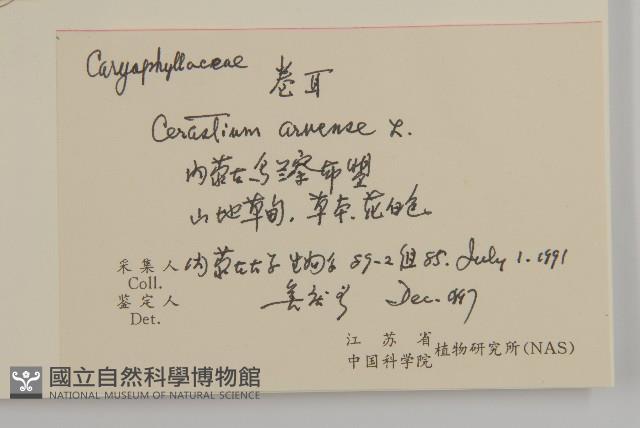 Caryophyllaceae
卷耳
Cerastium arvense L.
内蒙古乌兰察布盟
山地草甸，草本，花白色
采集人 内蒙古大学生物系 89-2组 85. July 1. 1991
Coll.
鉴定人 Dec. 1997
Det.
江苏省
中国科学院植物研究所(NAS)
國立自然科學博物館
NATIONAL MUSEUM OF NATURAL SCIENCE